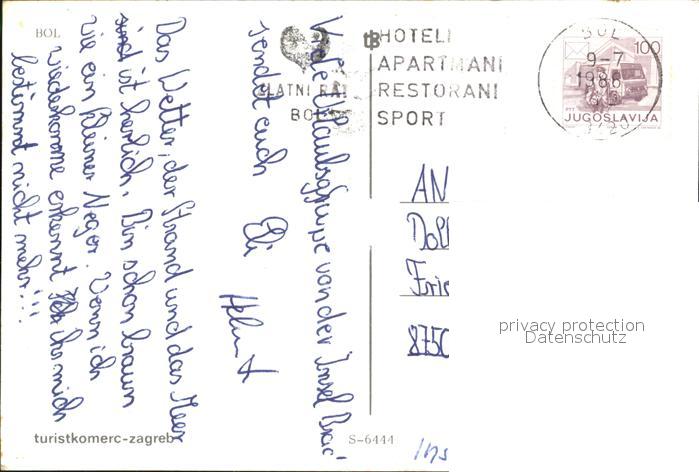 BOL
Viele Urlaubsgrüße von der Insel Brač
sendet euch Eli
Helmut
Das Wetter, der Strand und das Meer
sind ist herlich. Bin schon braun
wie ein kleiner Neger. Wenn ich
wiederkomme erkennt ihr mich
bestimmt nicht mehr!!!
turistkomerc-zagreb
S-6444
ZLATNI RAT
BOL
tB HOTELI
APARTMANI
RESTORANI
SPORT
BOL
9-7
1986
100
JUGOSLAVIJA
AN
Doll
Frie
8750
privacy protection
Datenschutz